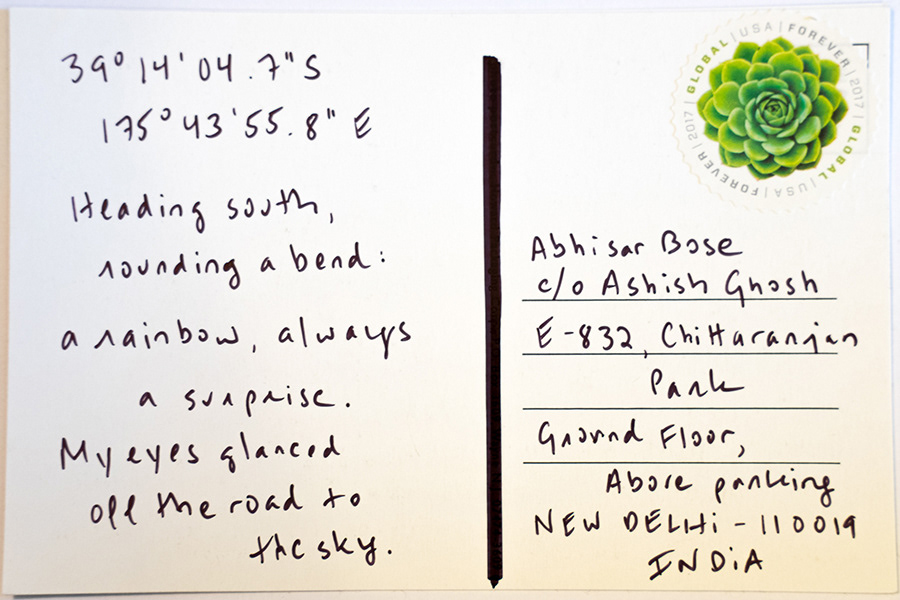 39° 14' 04.7" S
175° 43' 55.8" E
Heading south,
rounding a bend:
a rainbow, always
a surprise.
My eyes glanced
off the road to
the sky.
GLOBAL | USA | FOREVER | 2017 | GLOBAL | USA | FOREVER | 2017 |
Abhisar Bose
c/o Ashish Ghosh
E-832, Chittaranjan
Park
Ground Floor,
Above parking
NEW DELHi - 110019
INDiA